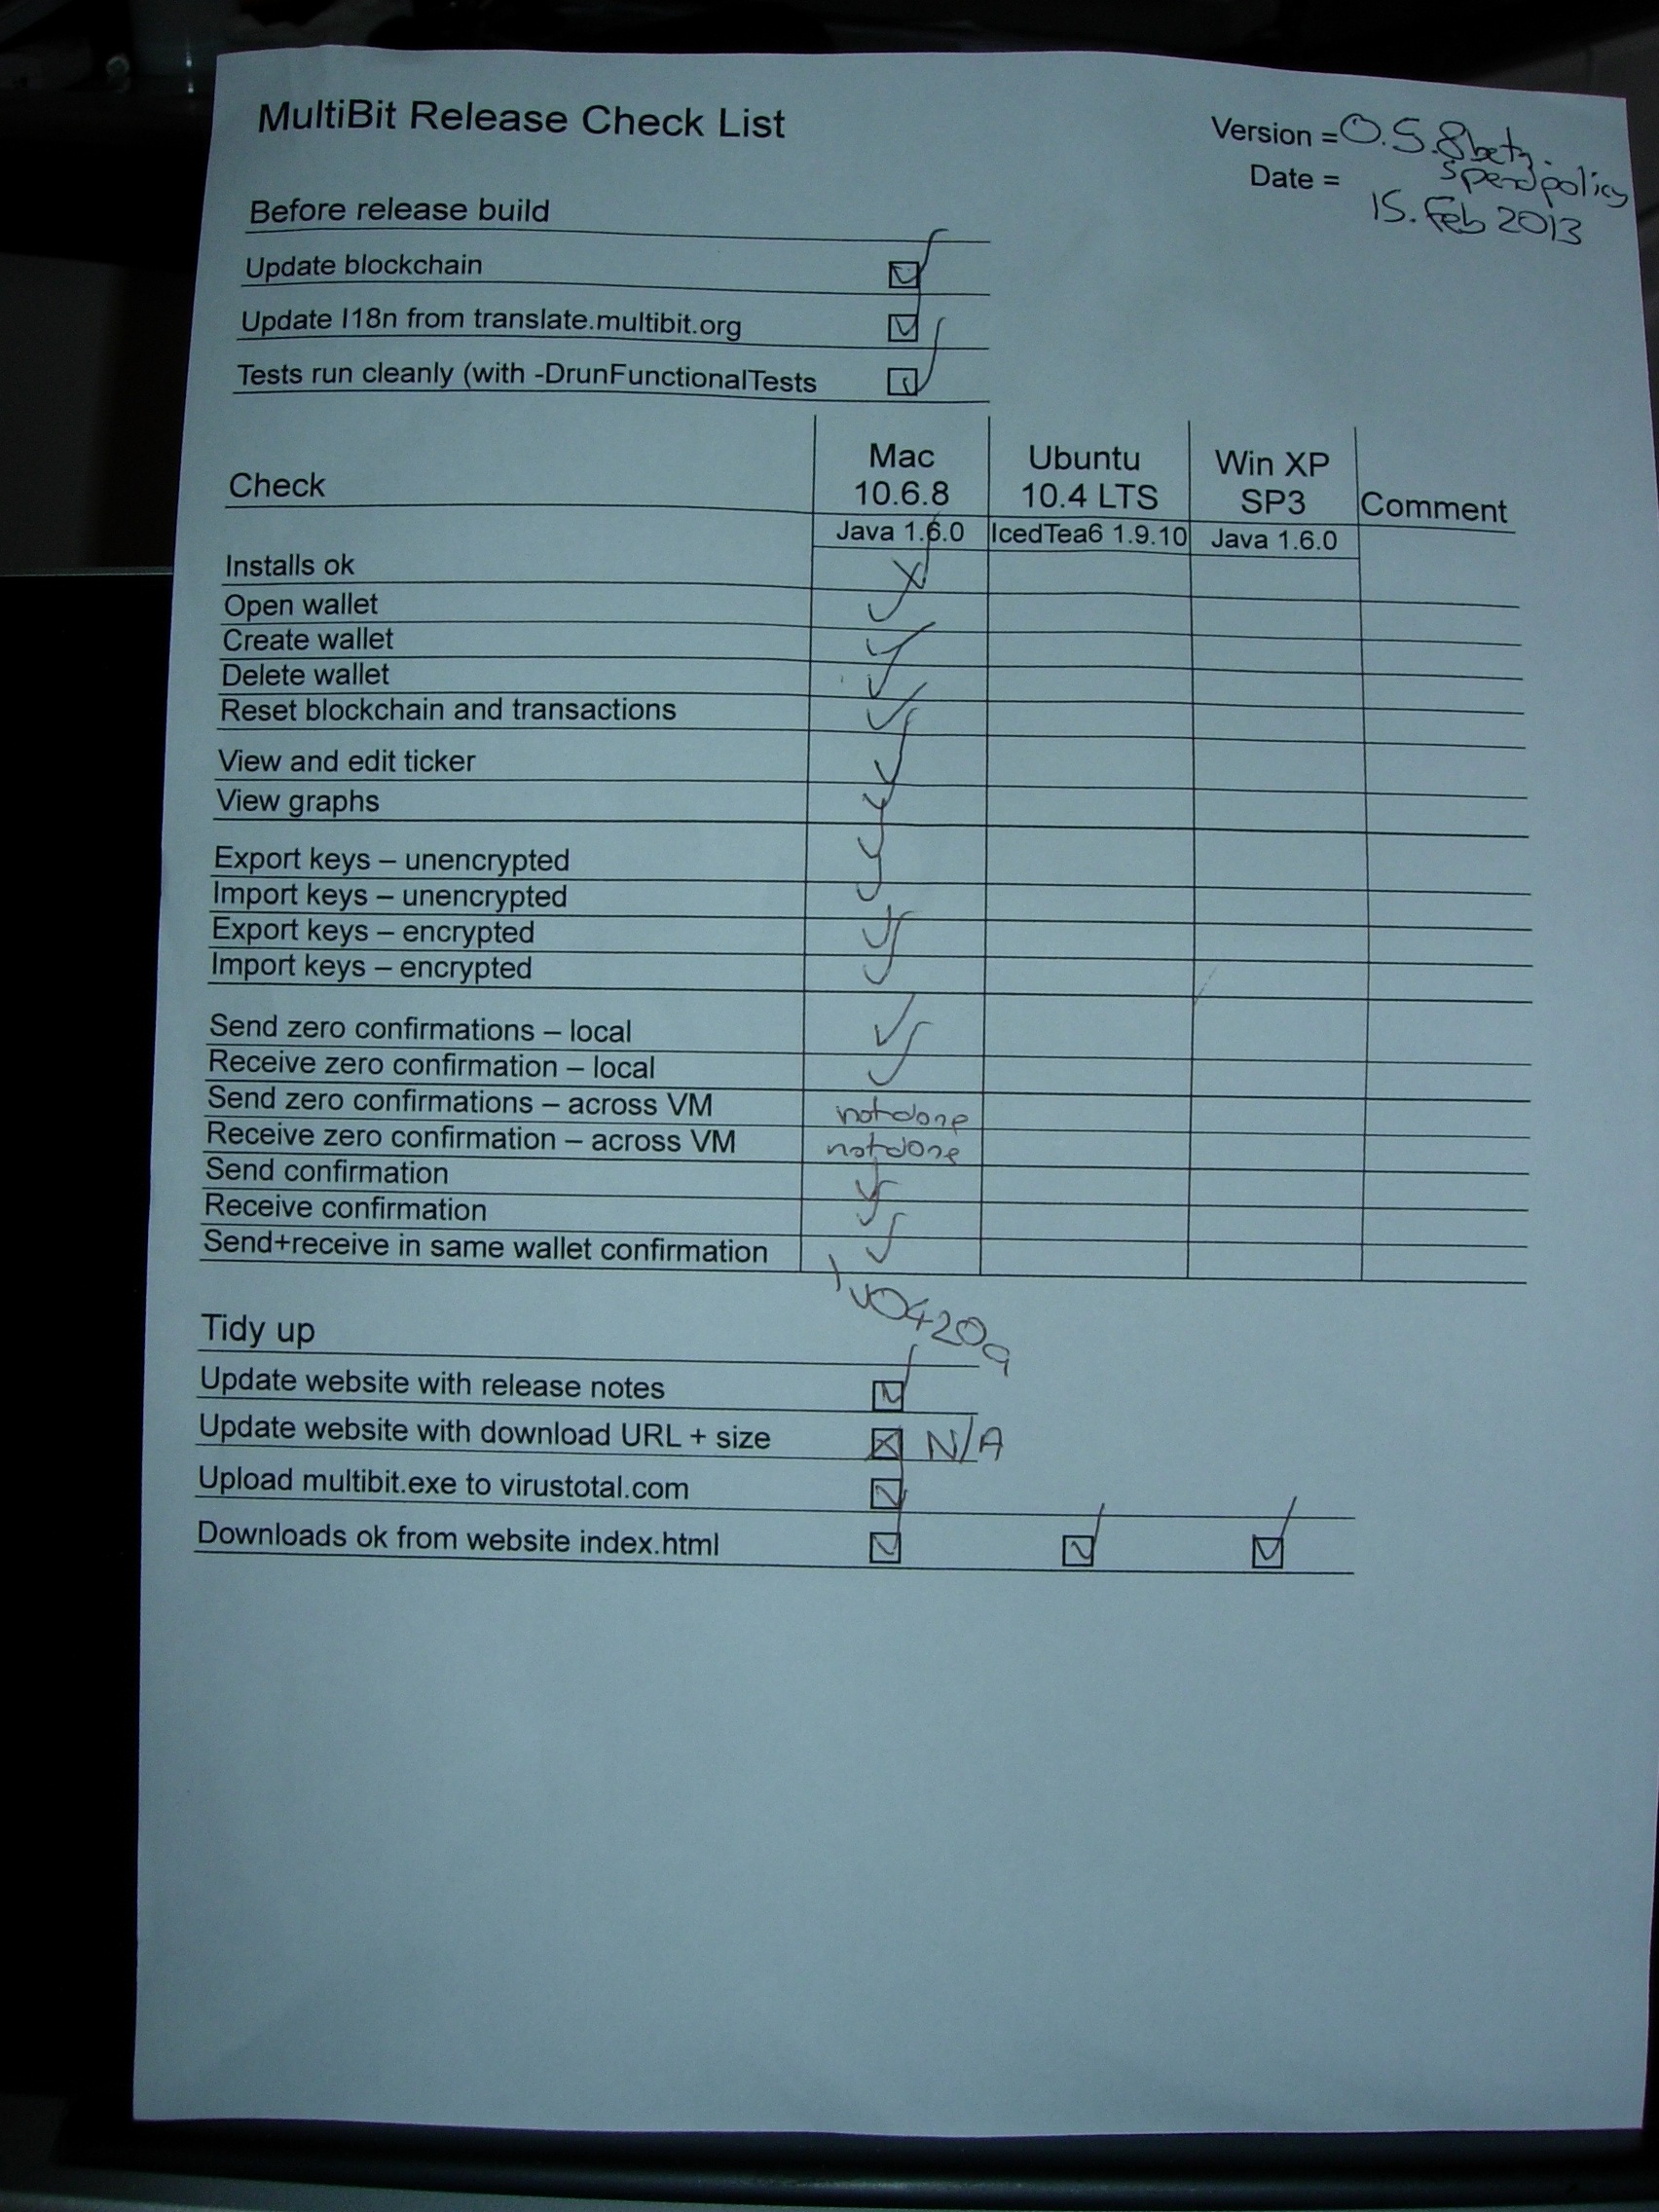 MultiBit Release Check List
Version = 0.5.8beta.
spendpolicy
Date =
15.Feb 2013
Before release build
Update blockchain
Update I18n from translate.multibit.org
Tests run cleanly (with -DrunFunctionalTests
Check
Mac 10.6.8
Ubuntu 10.4 LTS
Win XP SP3
Comment
Java 1.6.0
IcedTea6 1.9.10
Java 1.6.0
Installs ok
Open wallet
Create wallet
Delete wallet
Reset blockchain and transactions
View and edit ticker
View graphs
Export keys – unencrypted
Import keys – unencrypted
Export keys – encrypted
Import keys – encrypted
Send zero confirmations – local
Receive zero confirmation – local
Send zero confirmations – across VM not done
Receive zero confirmation – across VM not done
Send confirmation
Receive confirmation
Send+receive in same wallet confirmation
Tidy up
Update website with release notes
Update website with download URL + size N/A
Upload multibit.exe to virustotal.com
Downloads ok from website index.html